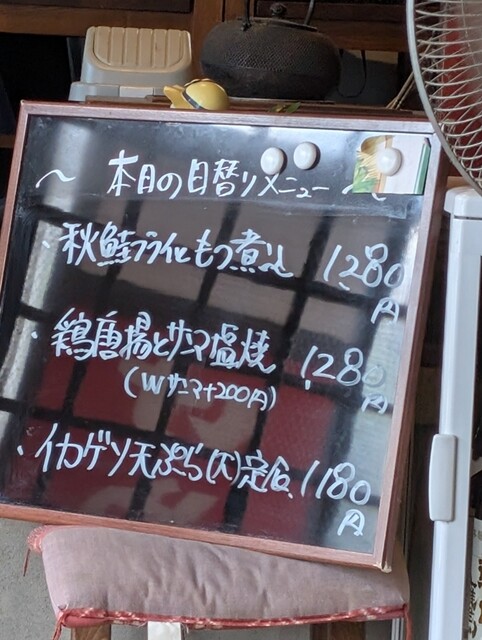 〜 本日の日替りメニュー 〜
・秋鮭フライともつ煮込 1,280円
・鶏唐揚とサンマ塩焼 1,280円
(Wサンマ+200円)
・イカゲソ天ぷら(大)定食 1180円